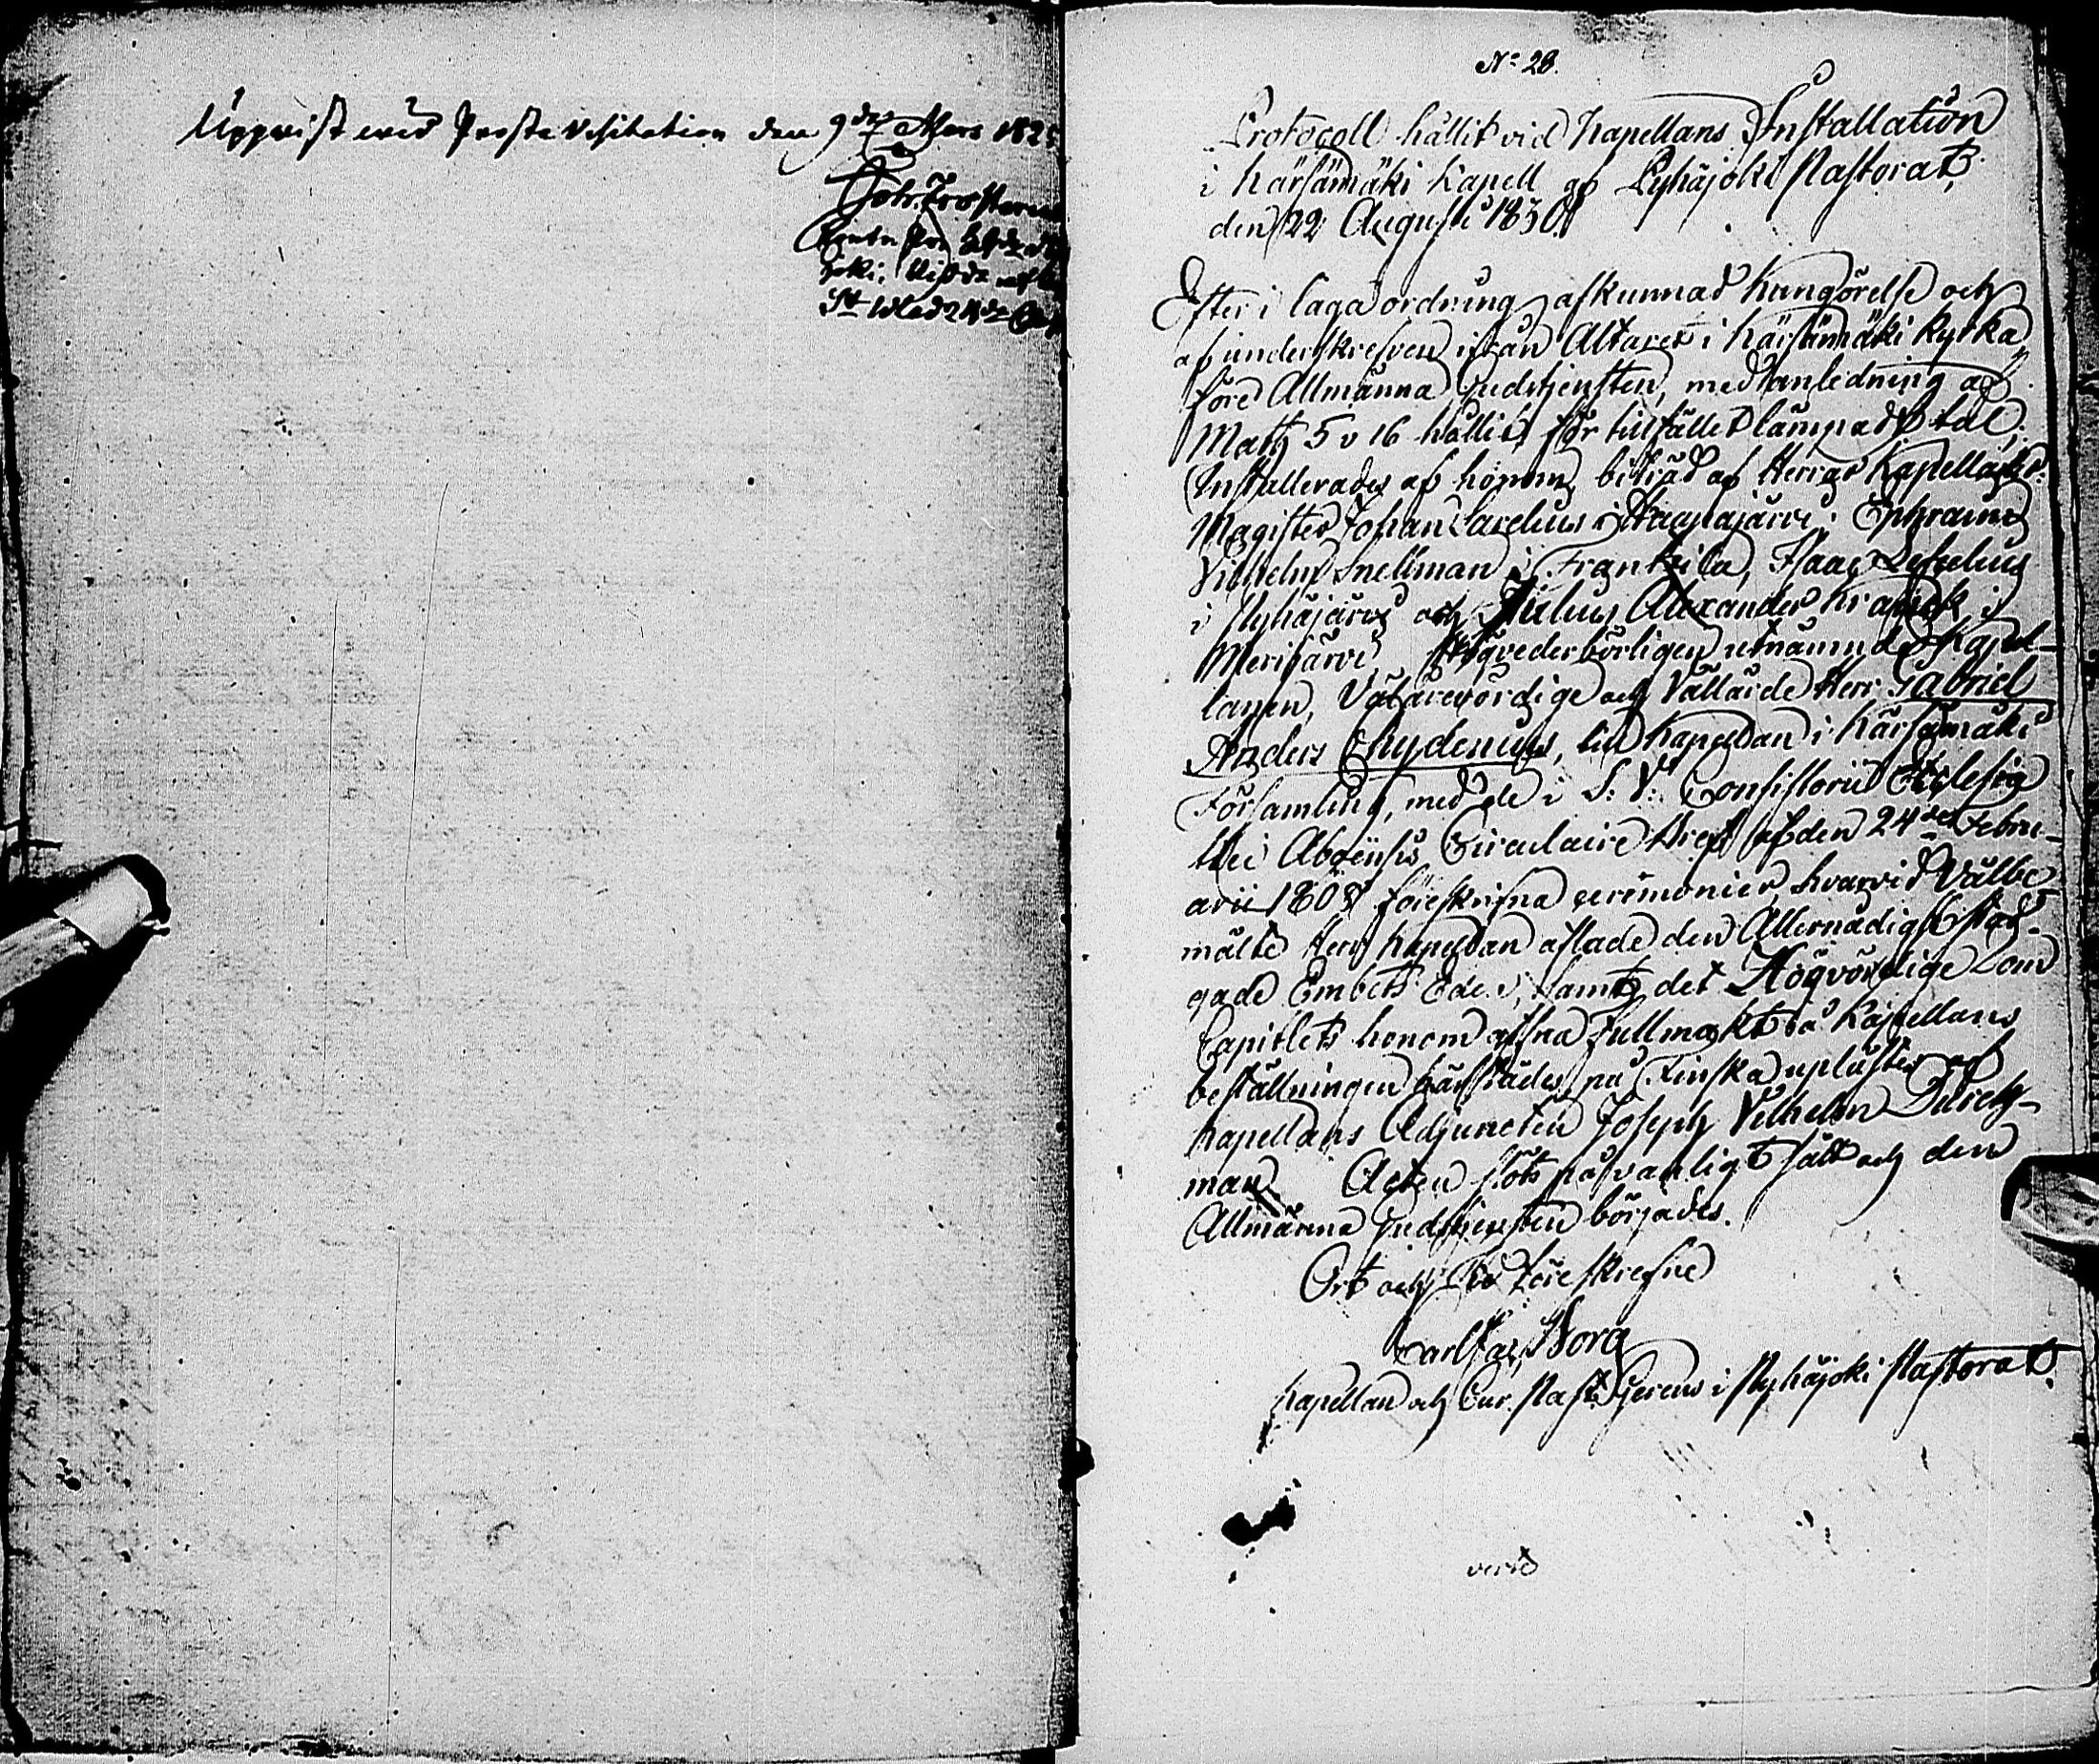 Uppvist wid Prosta Visitation den 9de Mars 182
Joh: Frosterus
No 28.
Protocoll hållit vid Kapellans Installation
i Kärsämäki Kapell af Pyhäjoki Pastorat,
den 22 Augusti 1830.
Efter i laga ordning afkunnad Kungörelse och
af underskrefven ifrån Altaret i Kärsämäki kyrka,
före Allmänna Gudstjensten, med anledning af
Math 5 v 16 hållit för tillfället lämpadt tal,
Installerades af honom, biträd af Herrar Kapellaner
Magister Johan Carelius i Haapajärvi, Ephraim
Vilhelm Snellman i Frantsila, Isaac
i Pyhäjärvi och Julius Alexander Kranck i
Merijärvi, Högvederbörligen utnämnde Kapel-
lanen, Välärevördige och Vällärde Herr Gabriel
Anders Chydenius, till Kapellan i Kärsämäki
Församling, med de i S: V: Consistorii Ecclesia
stici Aboënsis Circulaire Bref af den 24de Febru-
arii 1808 föreskrifna ceremonier, hvarvid Välbe-
mälte Herr Kapellan aflade den Allernådigst stad-
gade Embets Eden, samt det Högvördige Dom
Capitlets honom gifna fullmakt på Kapellans
beställningen härstädes på Finska uplästes af
Kapellans Adjuncten Joseph Vilhelm Durch-
man. Acten slöts på vanligt sätt och den
Allmänna Gudstjensten börjades.
Ort och Tid föreskrefne
Carl Jac. Borg
Kapellan och Cur. Past. Gerens i Pyhäjoki Pastorat.